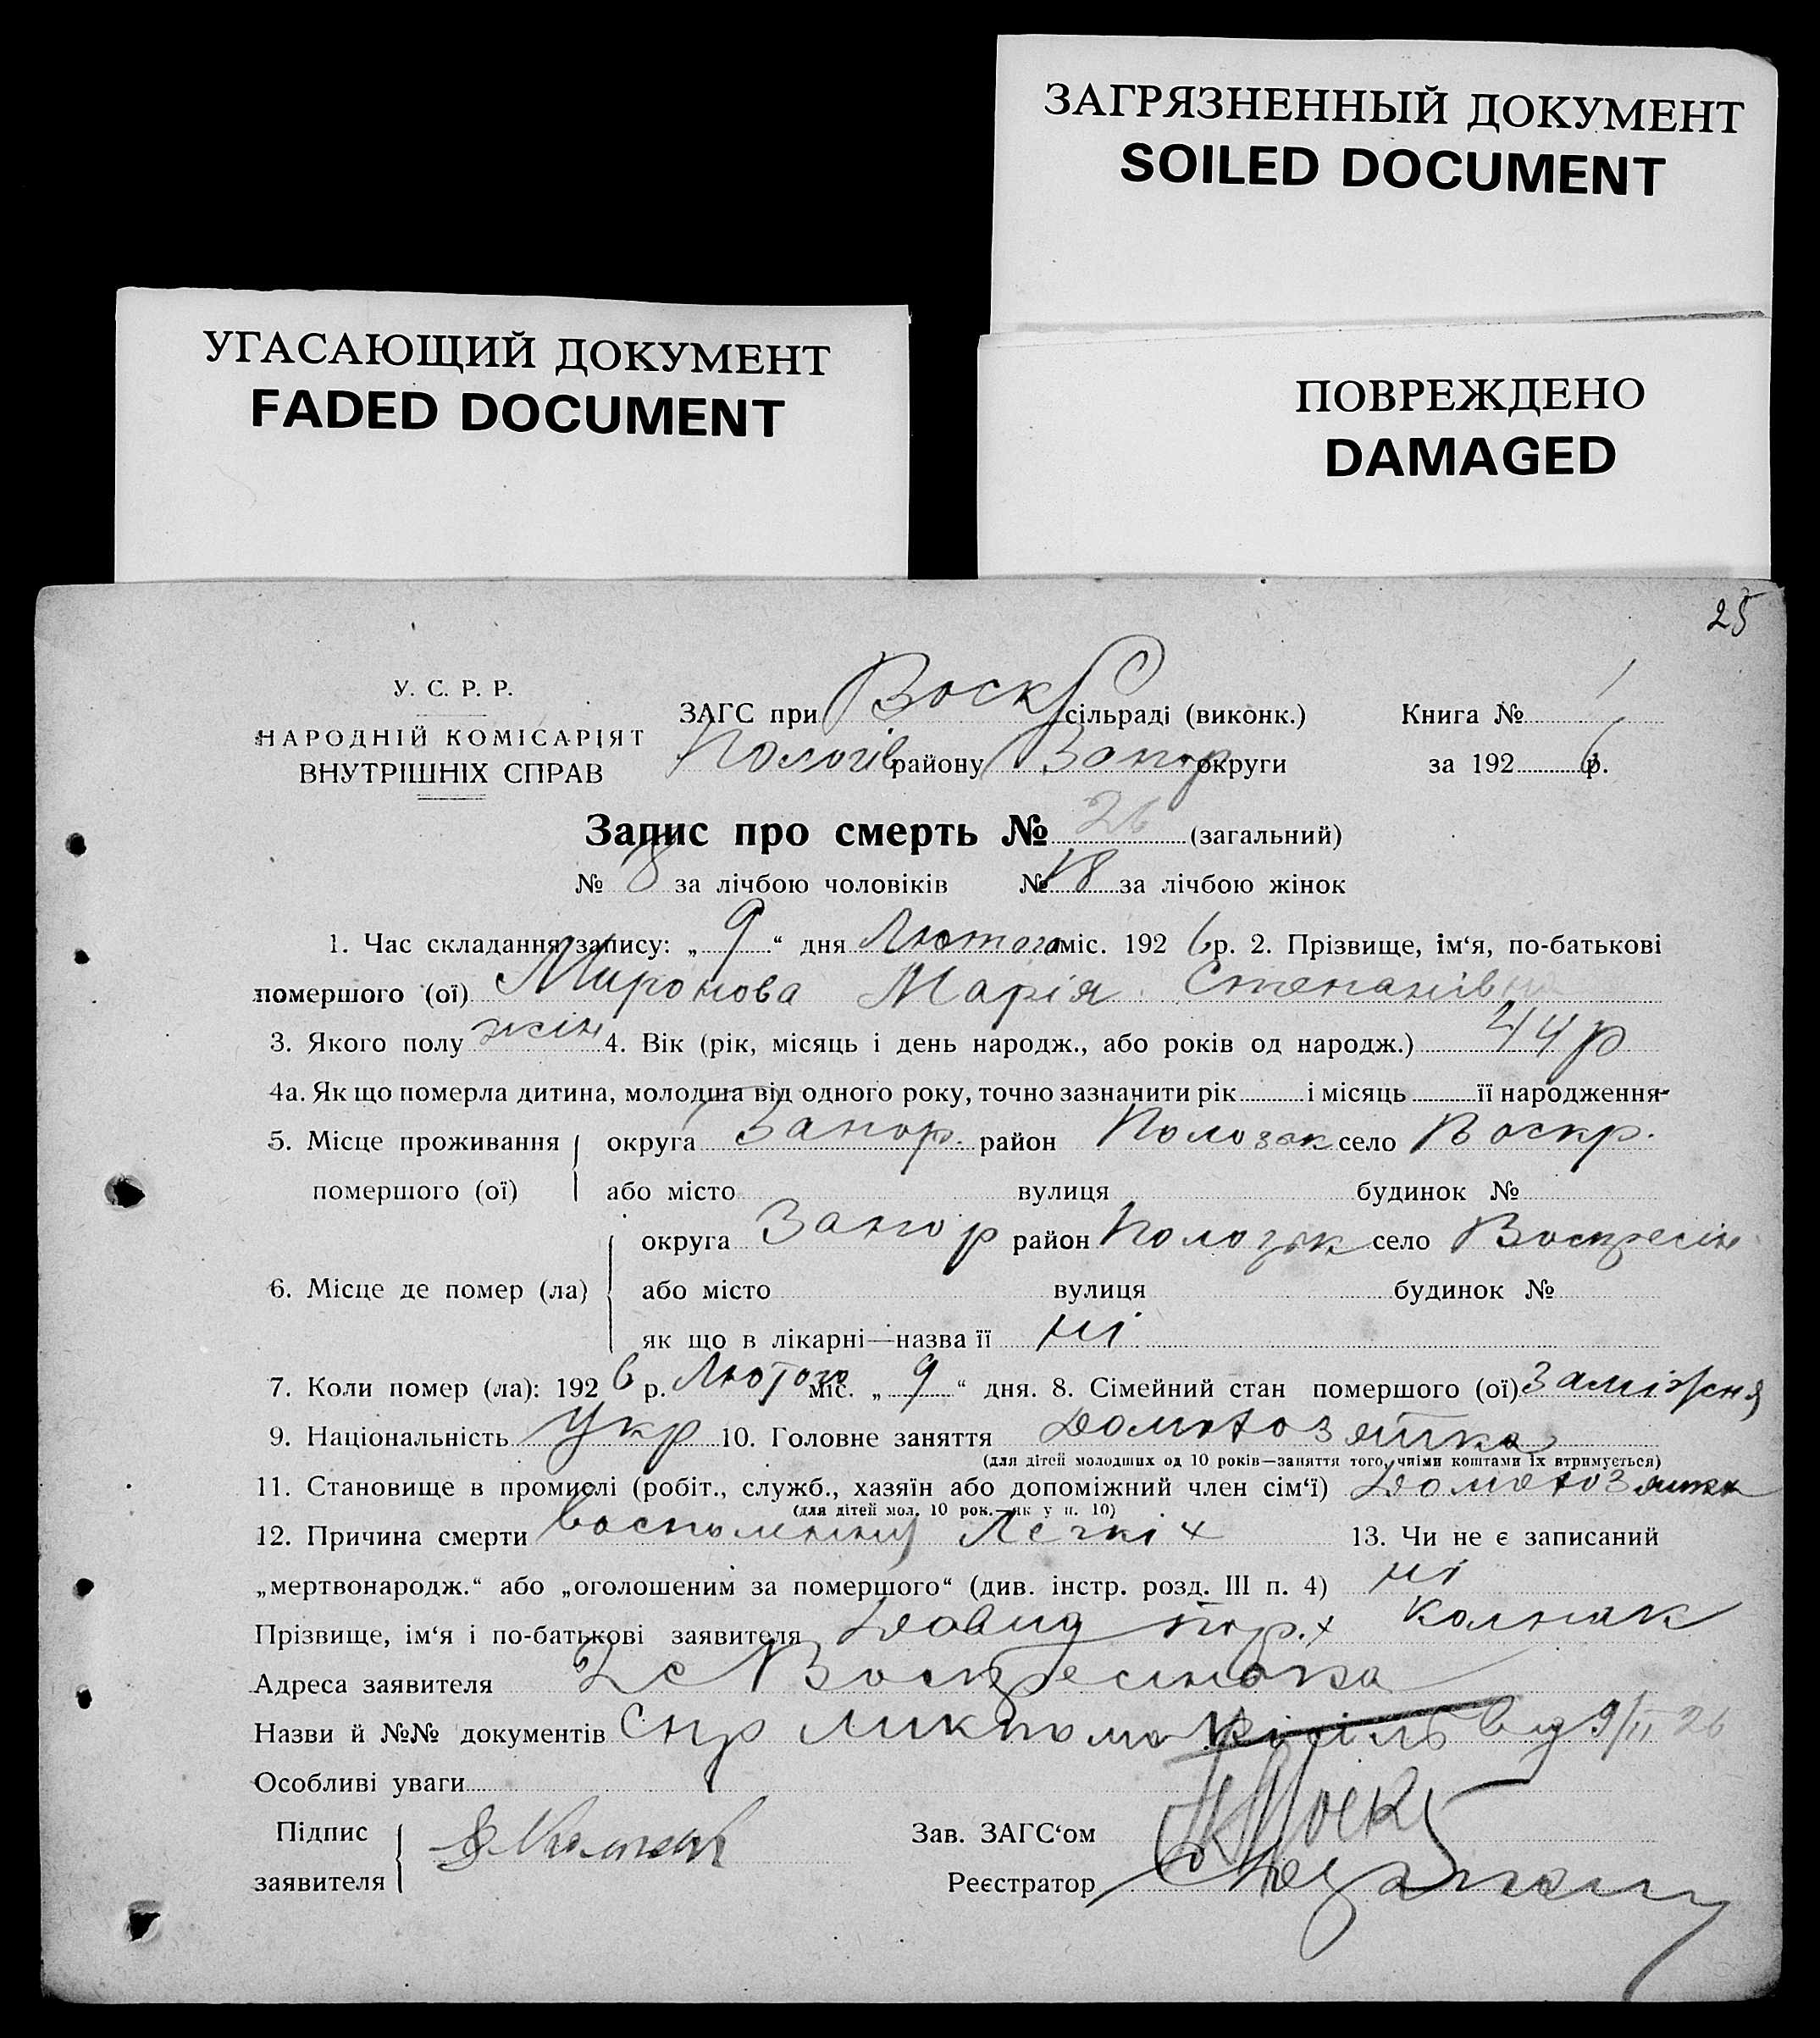 ЗАГРЯЗНЕННЫЙ ДОКУМЕНТ
SOILED DOCUMENT
УГАСАЮЩИЙ ДОКУМЕНТ
FADED DOCUMENT
ПОВРЕЖДЕНО
DAMAGED
25
У. С. Р. Р.
НАРОДНІЙ КОМІСАРІЯТ
ВНУТРІШНІХ СПРАВ
ЗАГС при Воскр сільраді (виконк.) Книга № 1
Пологів району Запор округи за 192 6 р.
Запис про смерть № 26 (загальний)
№ 8 за лічбою чоловіків № 18 за лічбою жінок
1. Час складання запису: „ 9 “ дня Лютого міс. 192 6 р. 2. Прізвище, ім‘я, по-батькові
помершого (ої) Миронова Марія Степанівна
3. Якого полу жін 4. Вік (рік, місяць і день народж., або років од народж.) 44 р
4а. Як що померла дитина, молодша від одного року, точно зазначити рік і місяць її народження
5. Місце проживання округа Запор. район село Воскр.
помершого (ої) або місто вулиця будинок №
округа Запор район село
6. Місце де помер (ла) або місто вулиця будинок №
як що в лікарні—назва її ні
7. Коли помер (ла): 192 6 р. Лютого міс. „ 9 “ дня. 8. Сімейний стан помершого (ої) Заміжня
9. Національність Укр 10. Головне заняття
(для дітей молодших од 10 років—заняття того, чиїми коштами їх втримується)
11. Становище в промислі (робіт., служб., хазяїн або допоміжний член сім‘ї)
(для дітей мол. 10 рок.—як у п. 10)
12. Причина смерти Легкіх 13. Чи не є записаний
„мертвонародж.“ або „оголошеним за помершого“ (див. інстр. розд. III п. 4) ні
Прізвище, ім‘я і по-батькові заявителя Давид Колпак
Адреса заявителя с Воскресінока
Назви й №№ документів від 9/II 26
Особливі уваги
Підпис
заявителя
Зав. ЗАГС‘ом
Реєстратор